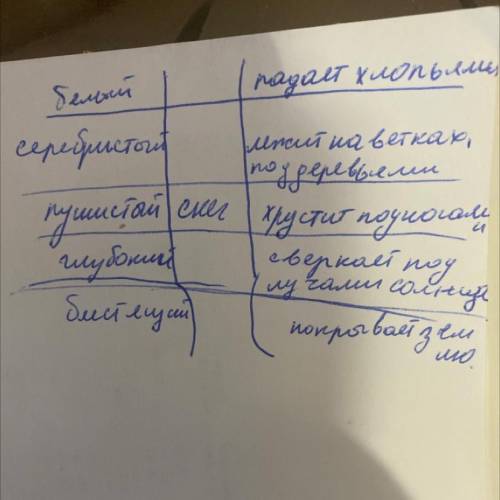 белый падает хлопьями
серебристый лежит на ветках,
под деревьями
пушистый снег хрустит под ногами
глубокий сверкает под
лучами солнца
блестящий покрывает зем
лю.